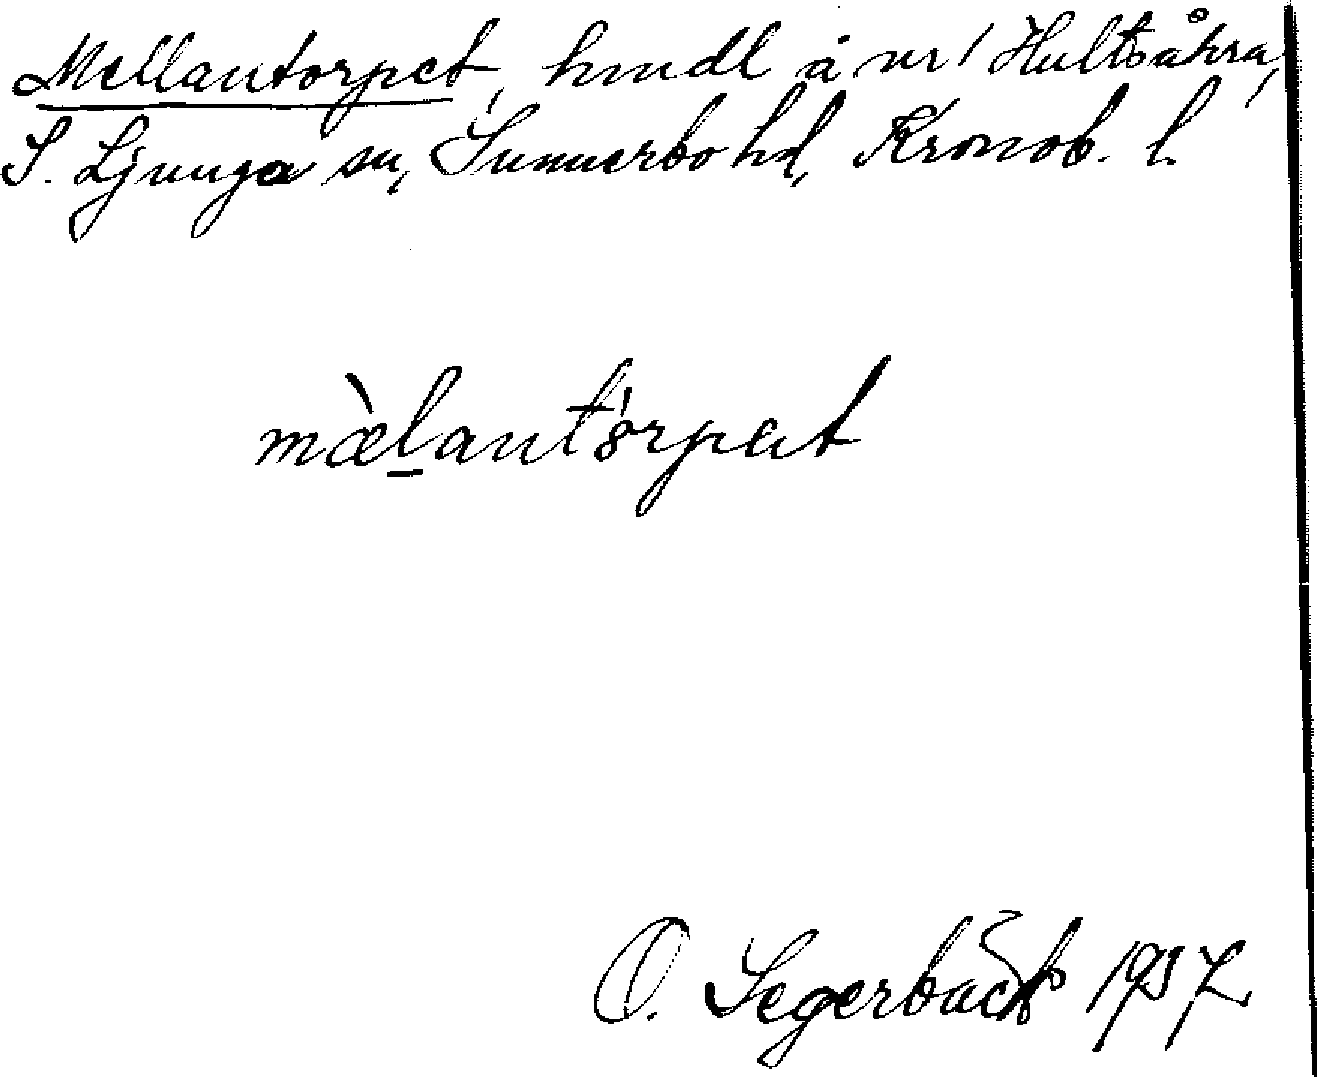 Mellantorpet, hmdl å nr 1 Hultsåkra,
S. Ljunga sn, Sunnerbo hd, Kronob. l.
mæ̀l̠antó̤rpet
O. Segerbäck 1937